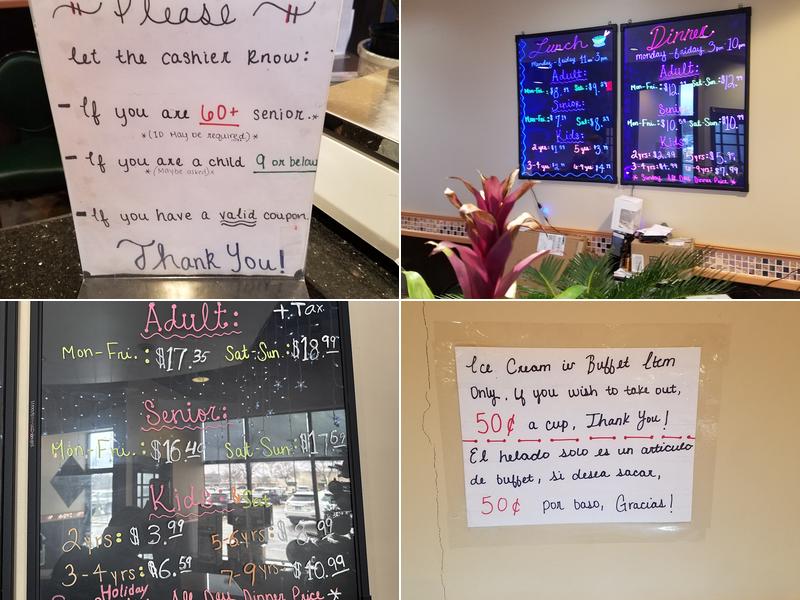 Please
let the cashier know:
- If you are 60+ senior.*
*(ID May be required)*
- If you are a child 9 or below
*(Maybe asked)*
- If you have a valid coupon.
Thank You!
Lunch
Monday - friday 11am-3pm
Adult:
Mon-Fri.
Senior:
Kids:
2 yrs:
5 yrs:
3-4 yrs:
Dinner
monday - friday 3pm-10pm
Adult:
Mon-Fri.: $12. Sat-Sun: $12.
Senior:
Mon-Fri.: $10. Sat-Sun: $10.
Kids:
* Sunday All Day Dinner Price *
Adult: + Tax
Mon-Fri.: $17.35 Sat-Sun.: $18.99
Senior:
Mon-Fri.: $16. Sat-Sun: $17.
Kids:
2yrs: $3.99 5-6yrs: .99
3-4yrs: $6.59 7-9yrs: $10.99
Holiday
All Day Dinner Price *
Ice Cream is Buffet Item
Only. If you wish to take out,
50¢ a cup, Thank You!
El helado solo es un articulo
de buffet, si desea sacar,
50¢ por baso, Gracias!